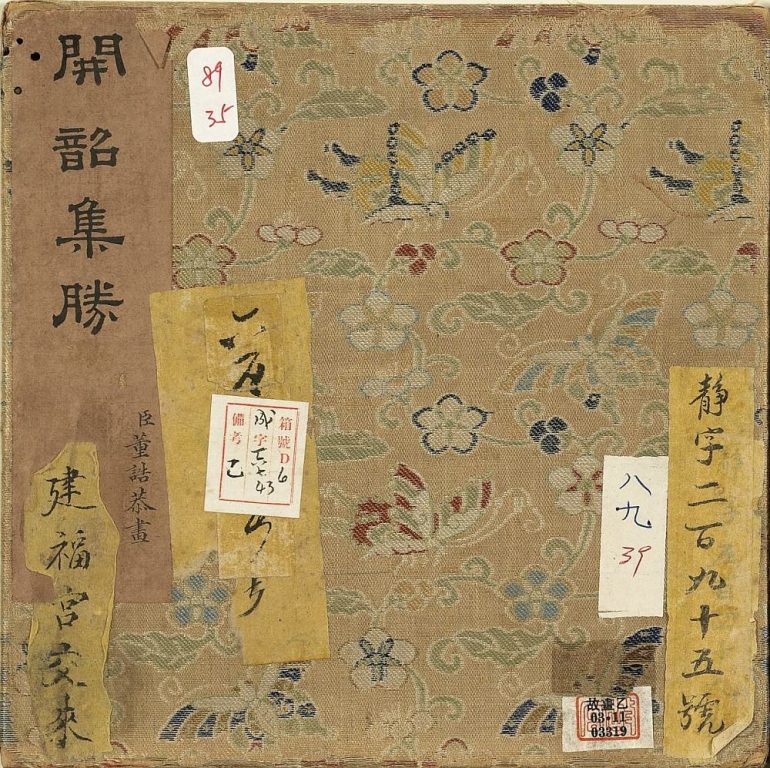 開韶集勝
臣董誥恭畫
建福宮交來
89
35
箱號D6
成字
備考 乙
八九
39
靜字二百九十五號
故畫乙
03-11
03319